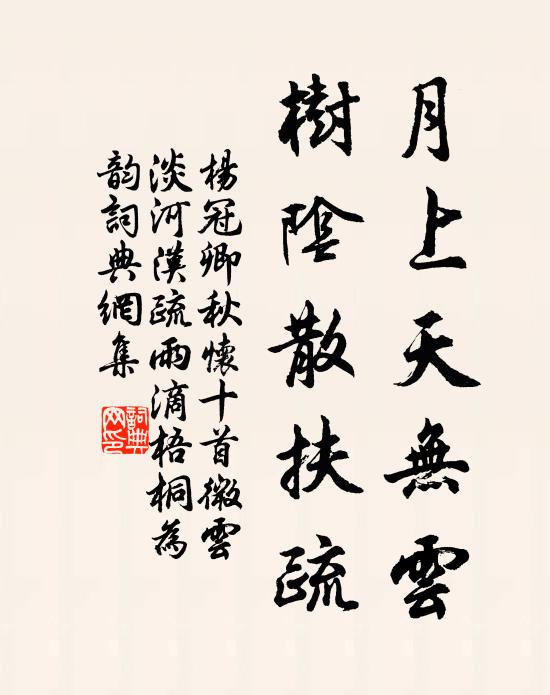 月上天無雲
樹陰散扶疏
楊冠卿秋懷十首微雲
淡河漢疏雨滴梧桐為
韵詞典網集
詞典
网印